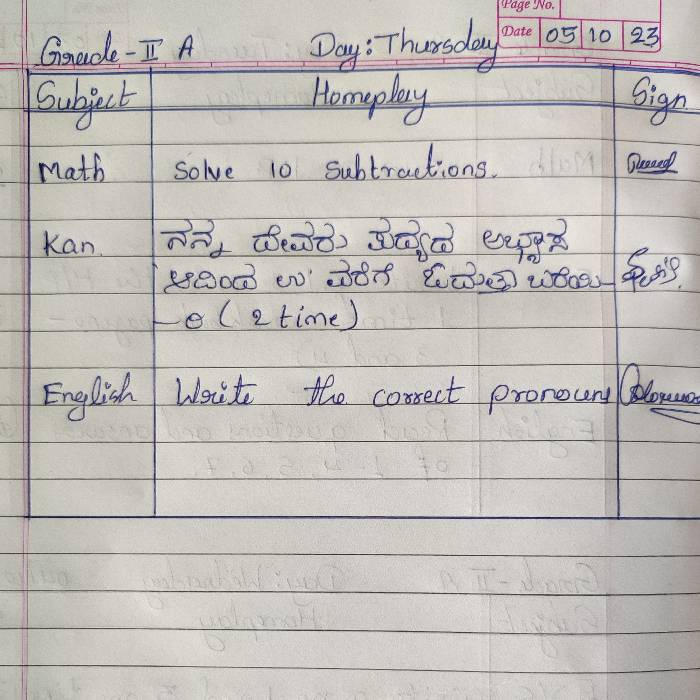 Page No.
Date 05 10 23
Grade - II A Day: Thursday
Subject Homeplay Sign
Math Solve 10 Subtractions.
Kan. ನನ್ನ ದೇವರು ಪದ್ಯದ ಅಭ್ಯಾಸ
ಅದಿಂದ ಉ ವರೆಗೆ ಓದುತ್ತಾ ಬರೆಯಿ
- ರಿ (2 time)
English Write the correct pronouns